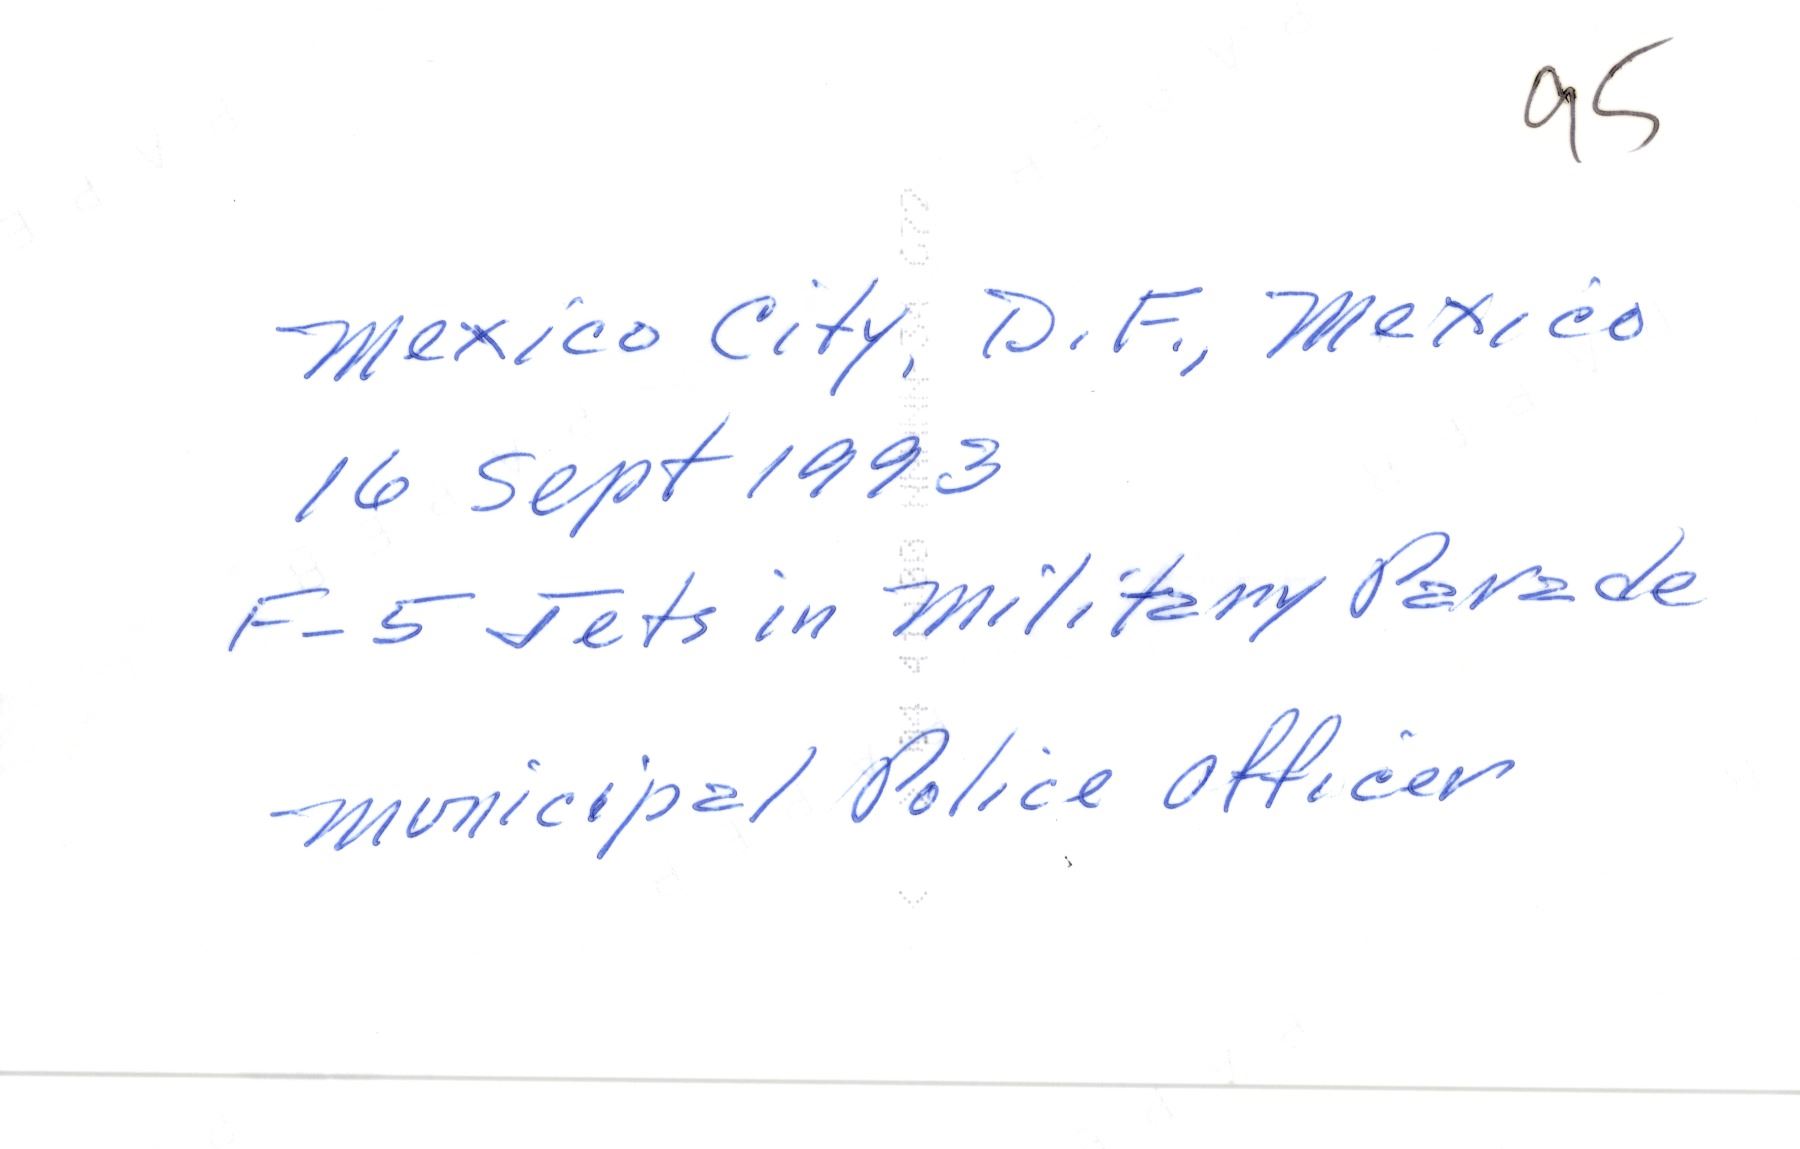 95
Mexico City, D.F., Mexico
16 Sept 1993
F-5 Jets in Military Parade
Municipal Police Officer